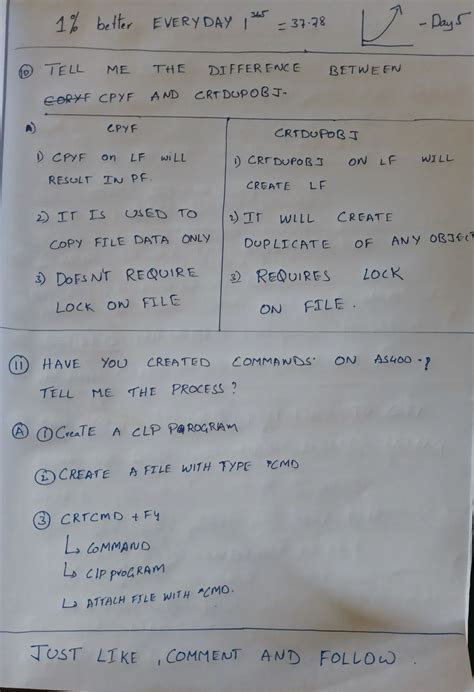 1% better EVERYDAY 1^365 = 37.78 - Day 5
10 TELL ME THE DIFFERENCE BETWEEN
CPYF AND CRTDUPOBJ-
A) CPYF
1) CPYF on LF WILL
RESULT IN PF.
2) IT IS USED TO
COPY FILE DATA ONLY
3) DOESNT REQUIRE
LOCK ON FILE
CRTDUPOBJ
1) CRTDUPOBJ ON LF WILL
CREATE LF
2) IT WILL CREATE
DUPLICATE OF ANY OBJECT
3) REQUIRES LOCK
ON FILE.
11 HAVE YOU CREATED COMMANDS ON AS400-?
TELL ME THE PROCESS?
A 1 CreaTE A CLP PROGRAM
2 CREATE A FILE WITH TYPE *CMD
3 CRTCMD + F4
↳ COMMAND
↳ CLP PROGRAM
↳ ATTACH FILE WITH *CMD.
JUST LIKE, COMMENT AND FOLLOW.